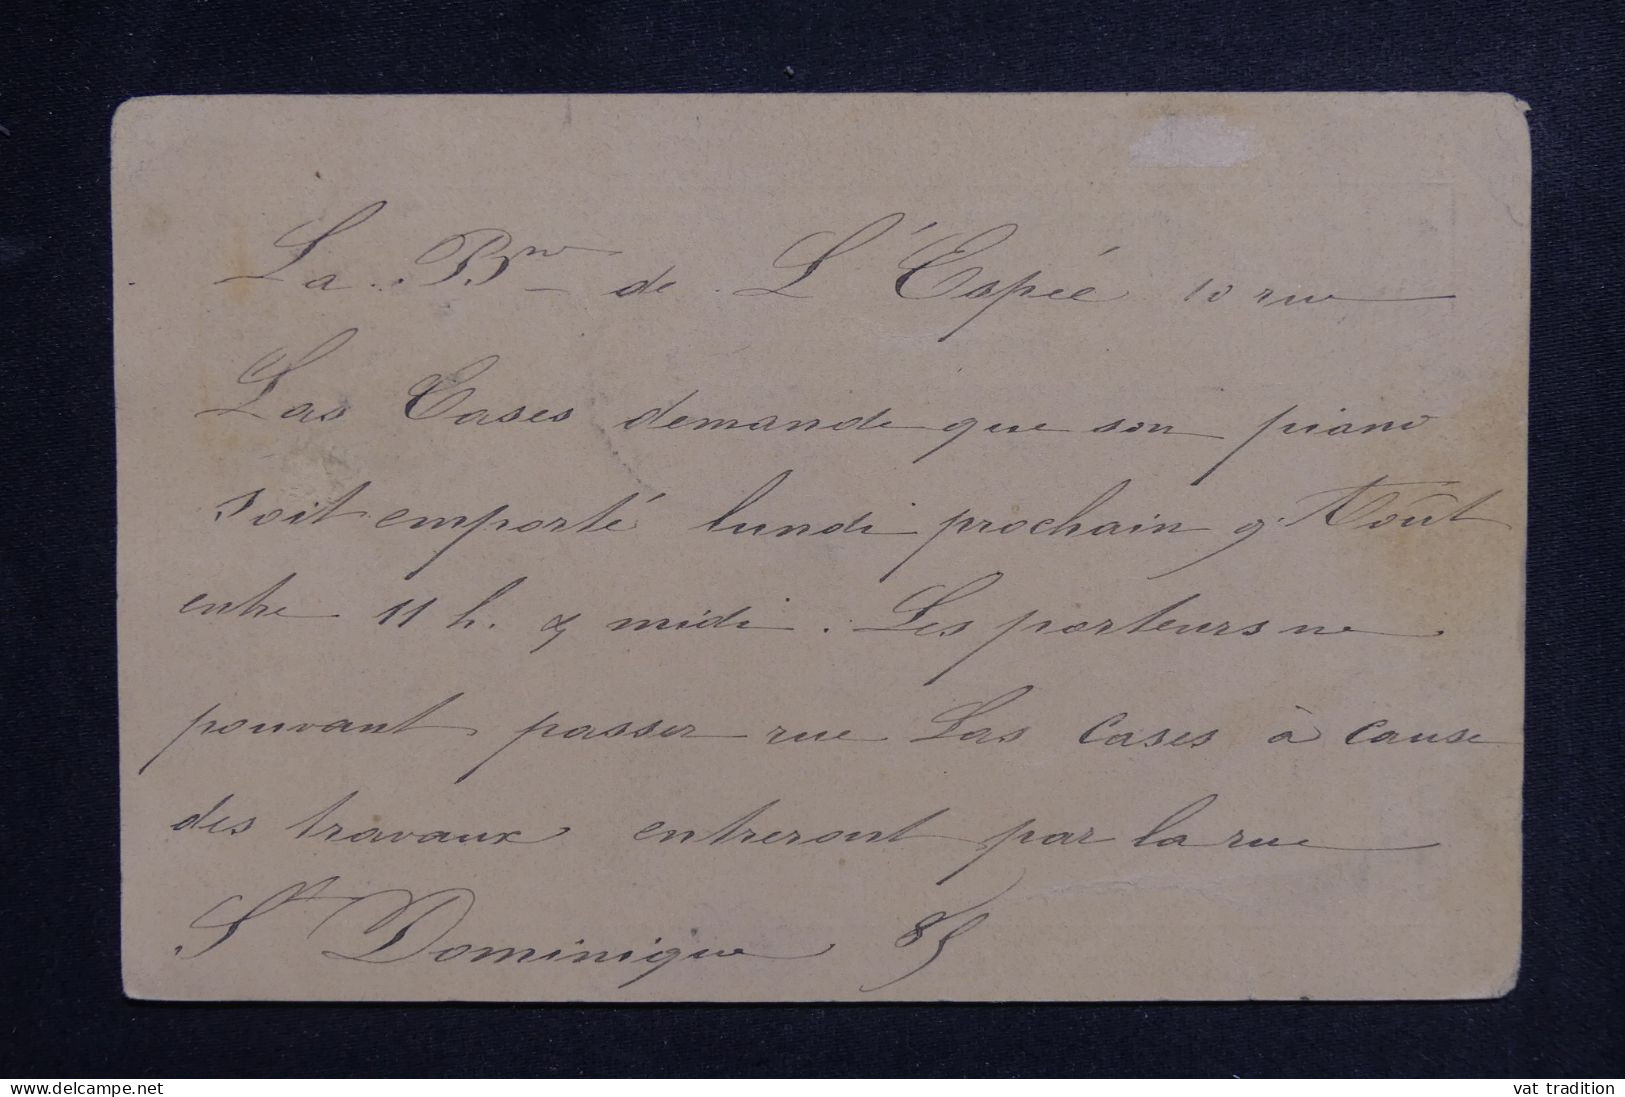 La Bnne de L'Espée 10 rue
Las Cases demande que son piano
soit emporté lundi prochain 9 Août
entre 11 h. & midi. Les porteurs ne
pouvant passer rue Las Cases à cause
des travaux entreront par la rue
St Dominique 85
www.delcampe.net
vat tradition